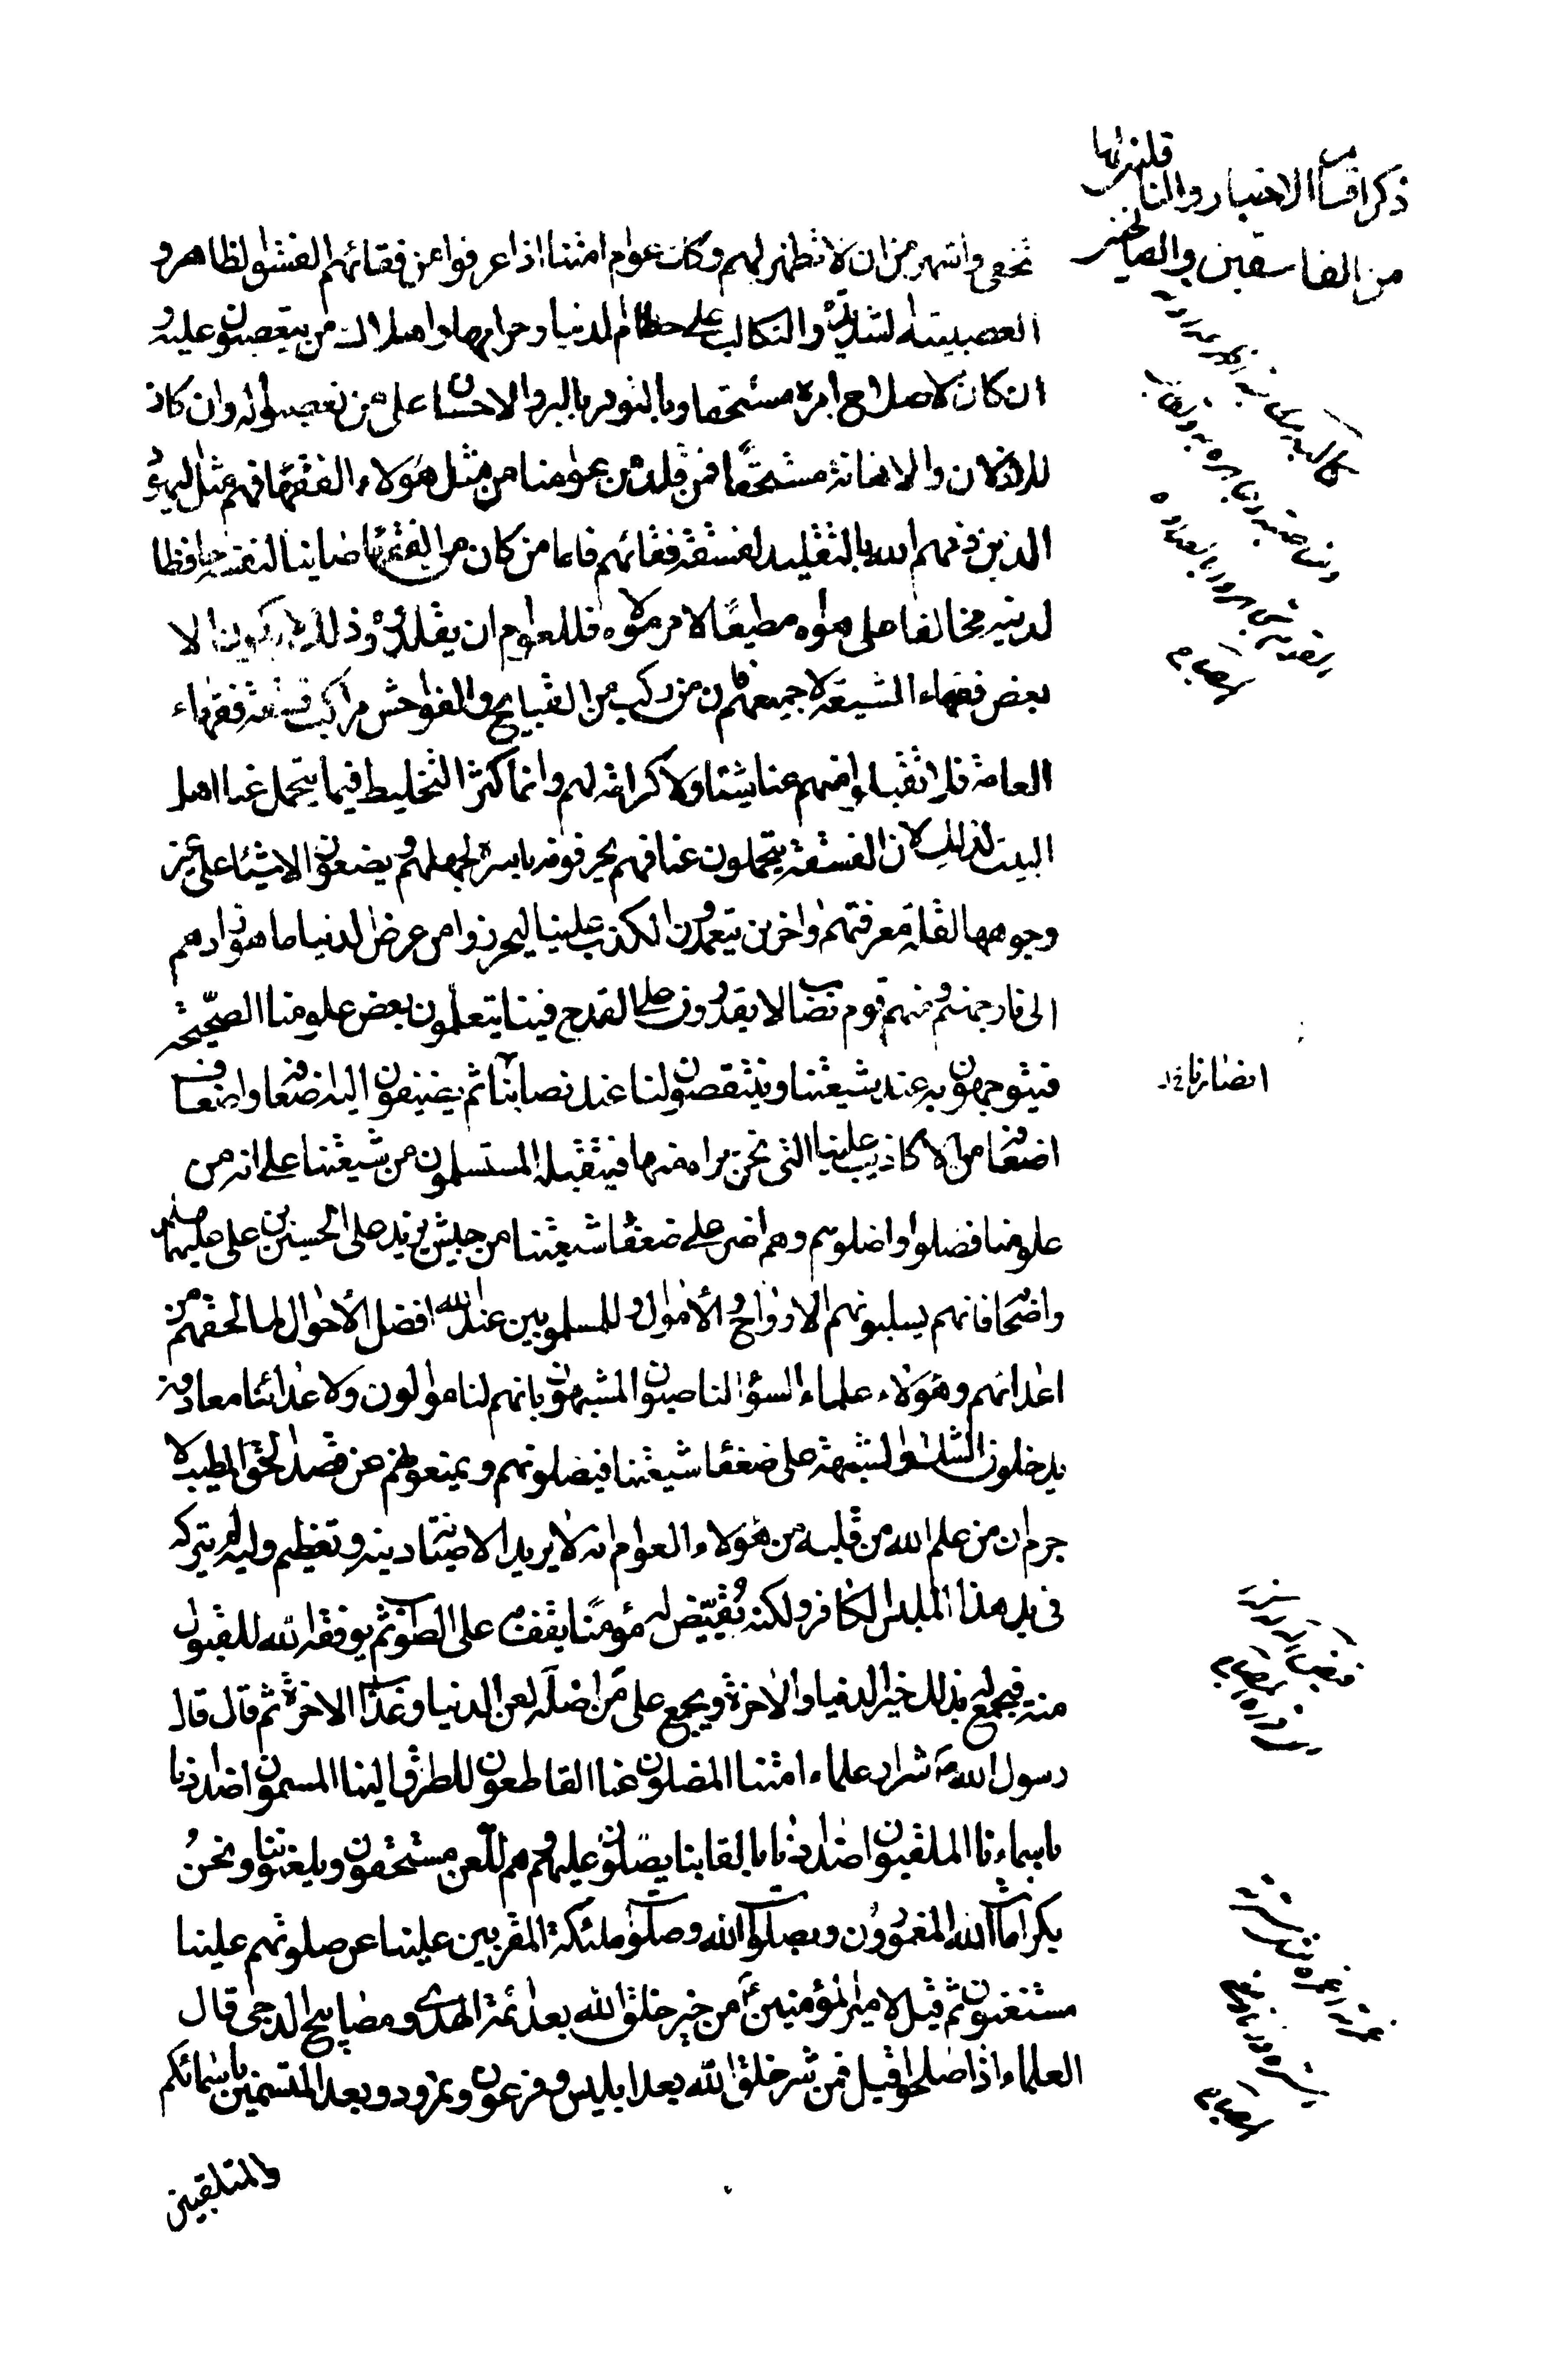 ذكر اقسام الاخبار والناقلين لها
من الفاسقين والصالحين
تخفى واشهر من ان لا تظهر لهم وكان عوام امتنا اذا عرفوا من فقائهم الفسق الظاهر و
العصبية الشديدة والتكالب على حطام الدنيا وحرامها واهلاك من يتعصبون عليه و
ان كان لاصلاح امره مستحقا وبالترفرف بالبر والاحسان على من تعصبوا له وان كان
للاذلال والاهانة مستحقا فمن قلد من عوامنا من مثل هؤلاء الفقهاء فهم مثل اليهود
الذين ذمهم الله بالتقليد لفسقة فقائهم فاما من كان من الفقهاء صاينا لنفسه حافظا
لدينه مخالفا على هواه مطيعا لامر مولاه فللعوام ان يقلدوه وذلك لا يكون الا
بعض فقهاء الشيعة لا جميعهم فان من ركب من القبايح والفواحش مراكب فسقة فقهاء
العامة فلا تقبلوا منهم عنا شيئا ولا كرامة لهم وانما كثر التخليط فيما يتحمل عنا اهل
البيت لذلك لان الفسقة يتحملون عنا فهم يحرفونه باسره لجهلهم ويضعون الاشياء على غير
وجوهها لقلة معرفتهم واخرين يتعمدون الكذب علينا ليجروا من عرض الدنيا ما هو زادهم
الى نار جهنم ومنهم قوم نصاب لا يقدرون على القدح فينا يتعلمون بعض علومنا الصحيحة
فيتوجهون به عند شيعتنا وينتقصون لنا عند نصابنا ثم يضيفون اليه اضعافه واضعاف
اضعافه من الاكاذيب علينا التى نحن براء منها فيتقبله المستسلمون من شيعتنا على انه من
علومنا فضلوا واضلوهم وهم اضر على ضعفاء شيعتنا من جيش يزيد على الحسين بن على عليهما
واصحابه فانهم يسلبونهم الارواح والاموال وللمسلوبين عند الله افضل الاحوال لما لحقهم من
اعدائهم وهؤلاء علماء السوء الناصبون المشبهون بانهم لنا موالون ولاعدائنا معادون
يدخلون الشك والشبهة على ضعفاء شيعتنا فيضلونهم ويمنعونهم عن قصد الحق المطيب لا
جرم ان من علم الله من قلبه من هؤلاء العوام انه لا يريد الا صيانة دينه وتعظيم وليه لم يتركه
فى يد هذا الملبس الكافر ولكنه يقيض له مؤمنا يقف به على الصواب ثم يوفقه الله للقبول
منه فيجمع له بذلك خير الدنيا والاخرة ويجمع على من اضله لعن الدنيا وعذاب الاخرة ثم قال قال
رسول الله ص شرار علماء امتنا المضلون عنا القاطعون للطرق الينا المسمون اضدادنا
باسماءنا الملقبون اضدادنا بالقابنا يصلون عليهم وهم للعن مستحقون ويلعنوننا ونحن
بكرامات الله المغمورون وبصلوات الله وصلوات ملئكته المقربين علينا عن صلوتهم علينا
مستغنون ثم قيل لامير المؤمنين ع من خير خلق الله بعد ائمة الهدى ومصابيح الدجى قال
العلماء اذا صلحوا قيل فمن شر خلق الله بعد ابليس وفرعون ونمرود وبعد المتسمين باسمائكم
والمتلقبين